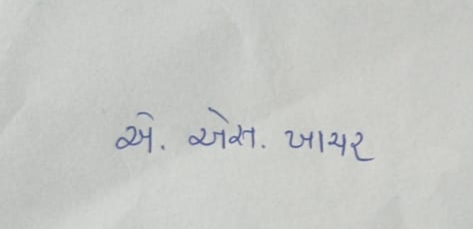 એ. એસ. ખાચર